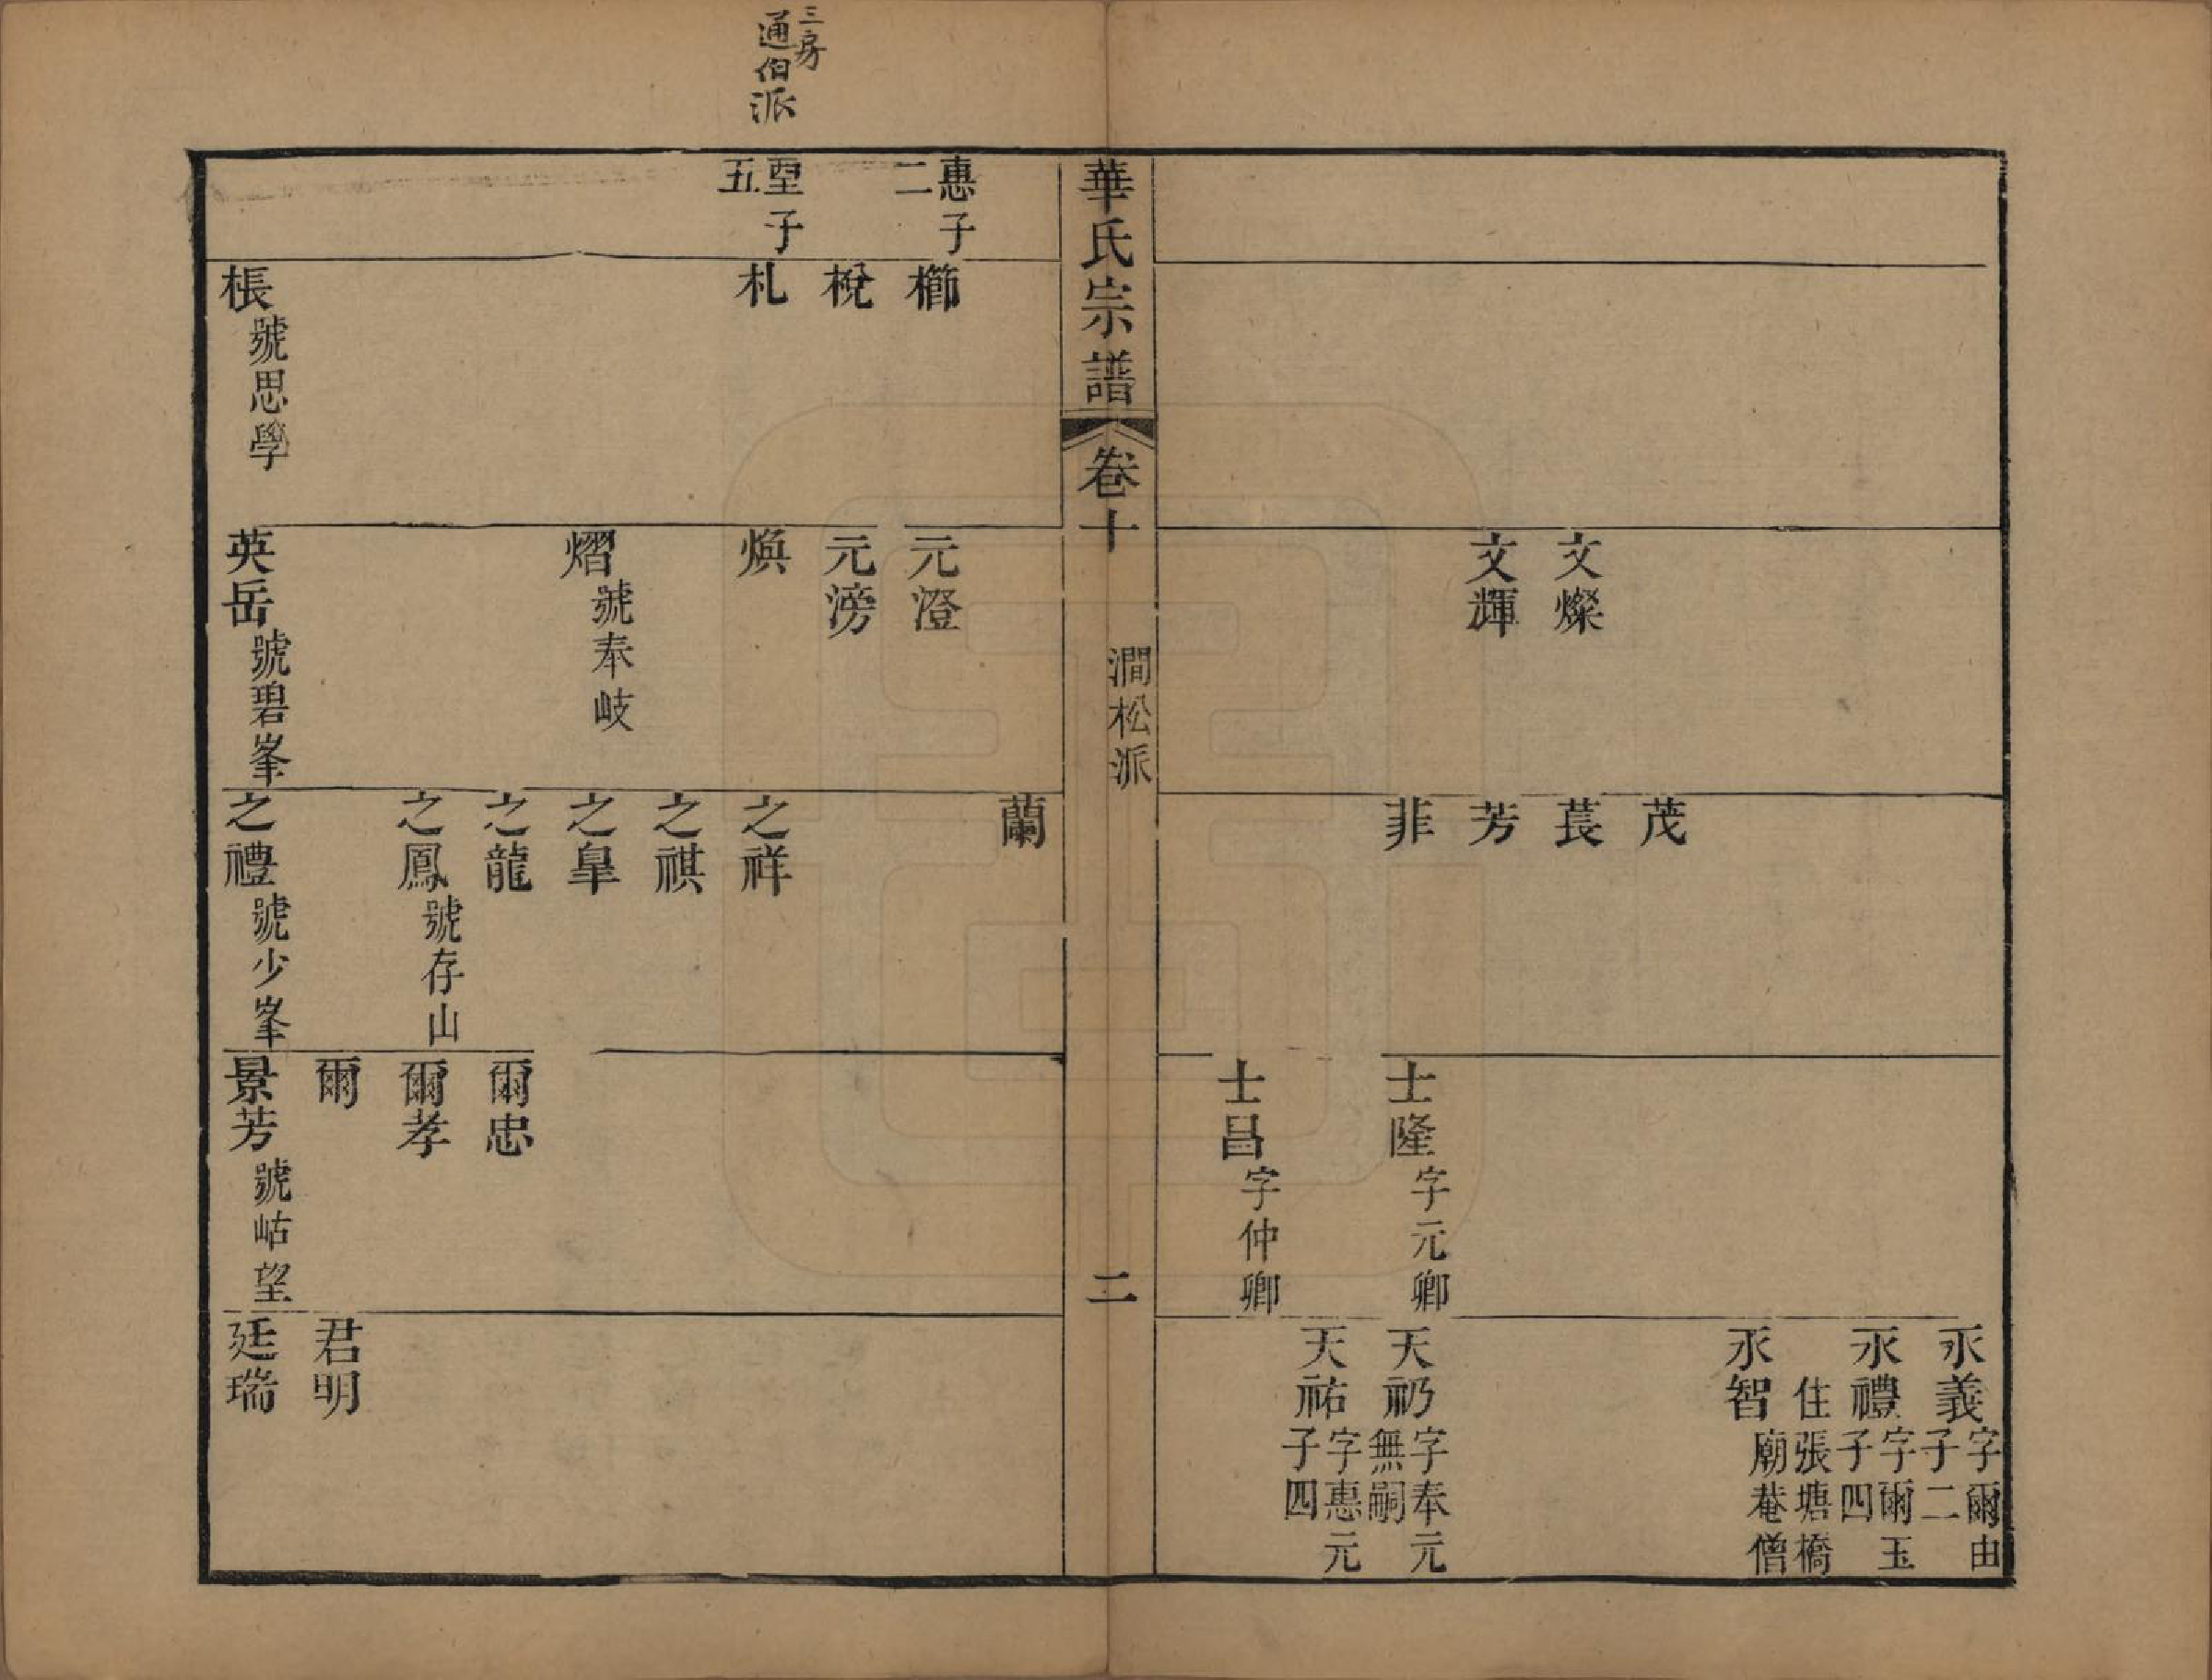 永義 字爾由 子二
永禮 字爾玉 子四
住張塘橋
永智 廟菴僧
茂
萇
文燦
芳
文輝
菲
士隆 字元卿
天礽 字奉元 無嗣
天祐 字惠元 子四
士昌 字仲卿
華氏宗譜 卷十 澗松派 二
蘭
惠子二
櫛
元澄
梲
元滂
三房
通伯派
堊子五
札
煥
之祥
之祺
熠 號奉岐
之皐
之龍
爾忠
之鳳 號存山
爾孝
爾
君明
棖 號思學
英岳 號碧峯
之禮 號少峯
景芳 號岵望
廷瑞